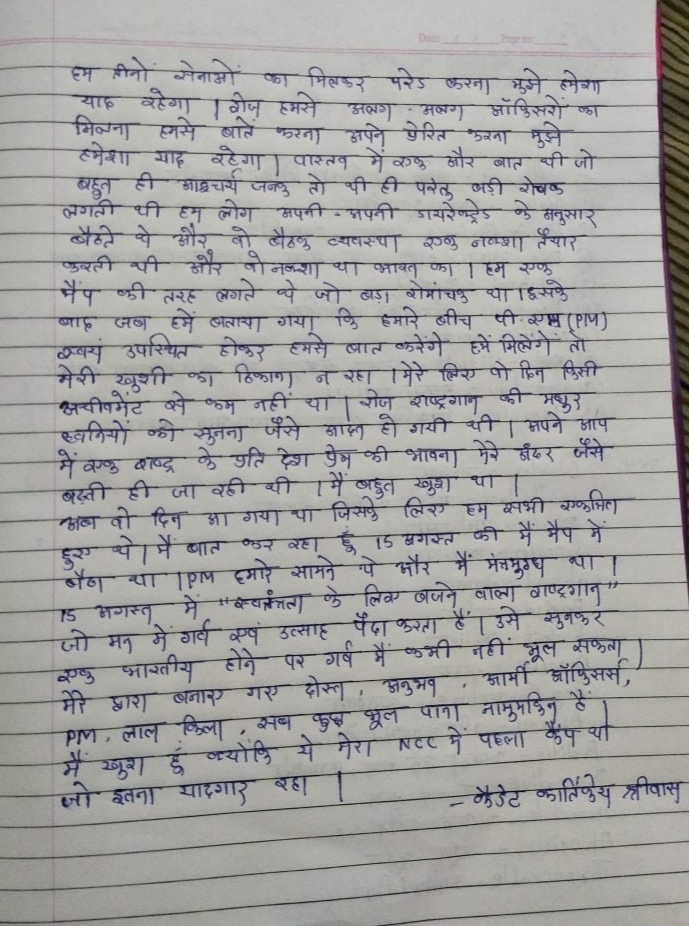 Date / / Page no.
हम तीनों सेनाओं का मिलकर परेड करना मुझे हमेशा
याद रहेगा | रोज़ हमसे अलग - अलग ऑफिसरों का
मिलना हमसे बातें करना अपने प्रेरित करना मुझे
हमेशा याद रहेगा | वास्तव में एक और बात थी जो
बहुत ही आश्चर्य जनक तो थी ही परंतु बड़ी रोचक
लगती थी हम लोग अपनी - अपनी डायरेक्ट्रेड के अनुसार
बैठते थे और वो बैठक व्यवस्था एक नक्शा तैयार
करती थी और वो नक्शा था भारत का | हम एक
मैप की तरह लगते थे जो बड़ा रोमांचक था | इसके
बाद जब हमें बताया गया कि हमारे बीच पी. एम (PM)
स्वयं उपस्थित होकर हमसे बात करेंगे हमें मिलेंगें तो
मेरी खुशी का ठिकाना न रहा | मेरे लिए वो दिन किसी
अचीवमेंट से कम नहीं था | रोज राष्ट्रगान की मधुर
ध्वनियों को सुनना जैसे आदत हो गयी थी | अपने आप
में एक राष्ट्र के प्रति देश प्रेम की भावना मेरे अंदर जैसे
बढ़ती ही जा रही थी | मैं बहुत खुश था |
अब वो दिन आ गया था जिसके लिए हम सभी एकत्रित
हुए थे | मैं बात कर रहा हूं 15 अगस्त की मैं मैप में
बैठा था | PM हमारे सामने थे और मैं मंत्रमुग्ध था |
15 अगस्त में "स्वतंत्रता के लिए बजने वाला राष्ट्रगान"
जो मन में गर्व एवं उत्साह पैदा करता है | उसे सुनकर
एक भारतीय होने पर गर्व मैं कभी नहीं भूल सकता |
मेरे द्वारा बनाए गए दोस्त, अनुभव, आर्मी ऑफिसर्स,
PM, लाल किला, सब कुछ भूल पाना नामुमकिन है |
मैं खुश हूं क्योंकि ये मेरा NCC में पहला कैंप था
जो इतना यादगार रहा |
– कैडेट कार्तिकेय श्रीवास